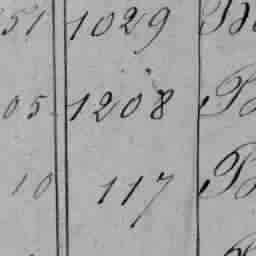 51 1029
05 1208
10 117